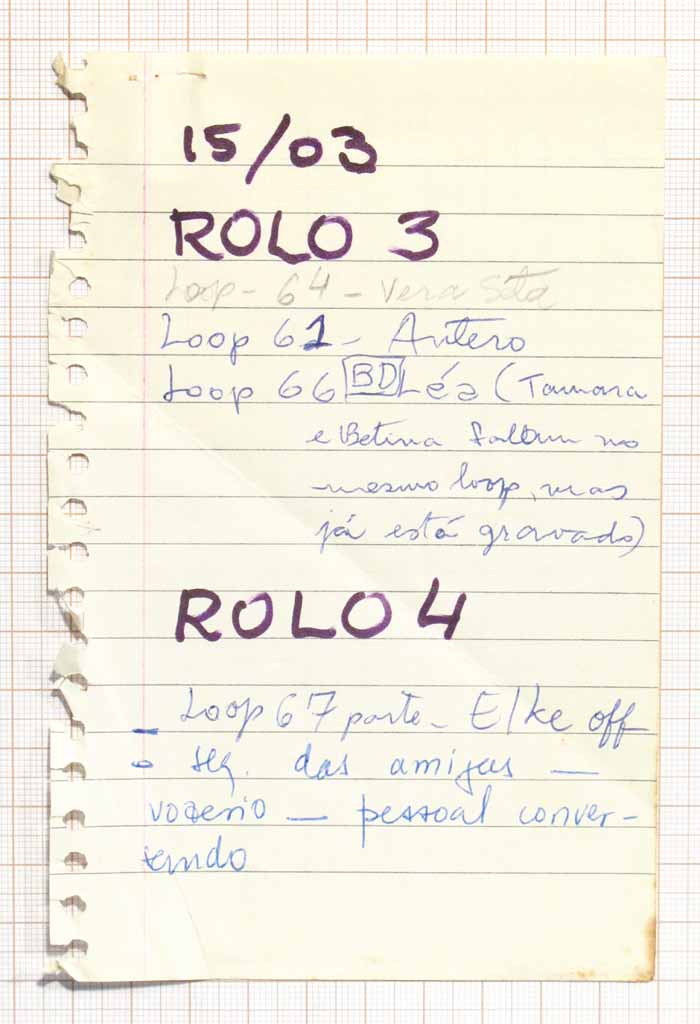 15/03
ROLO 3
Loop - 64 - Vera
Loop 61 - Antero
Loop 66 BD Léa (Tamara
e Betina falam no
mesmo loop, mas
já está gravado)
ROLO 4
Loop 67 parte - Elke off
seq. das amigas —
vozerio — pessoal conver-
sando